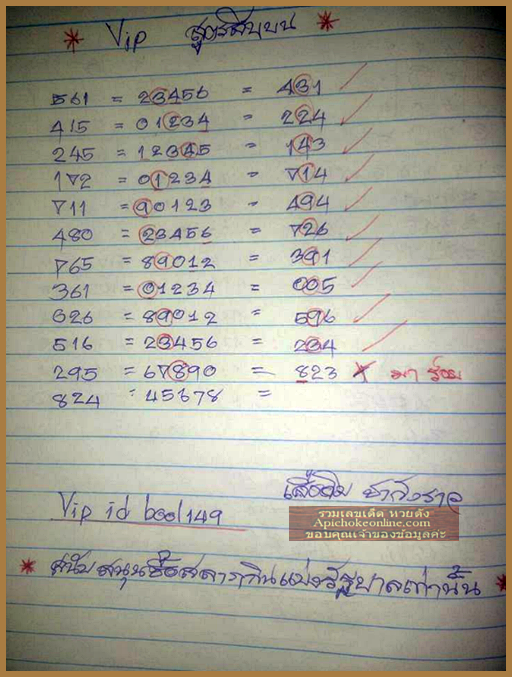 * Vip สูตรสิบบน *
561 = 23456 = 431 ✓
415 = 01234 = 224 ✓
245 = 12345 = 143 ✓
172 = 01234 = 714 ✓
711 = 90123 = 494 ✓
480 = 23456 = 726 ✓
765 = 89012 = 391 ✓
361 = 01234 = 005 ✓
626 = 89012 = 596 ✓
516 = 23456 = 234 ✓
295 = 67890 = 823 ✗ มาร้อย
824 = 45678 =
Vip id bool149
รวมเลขเด็ด หวยดัง
Apichokeonline.com
ขอบคุณเจ้าของข้อมูลค่ะ
* สนับสนุนซื้อสลากกินแบ่งรัฐบาลเท่านั้น *